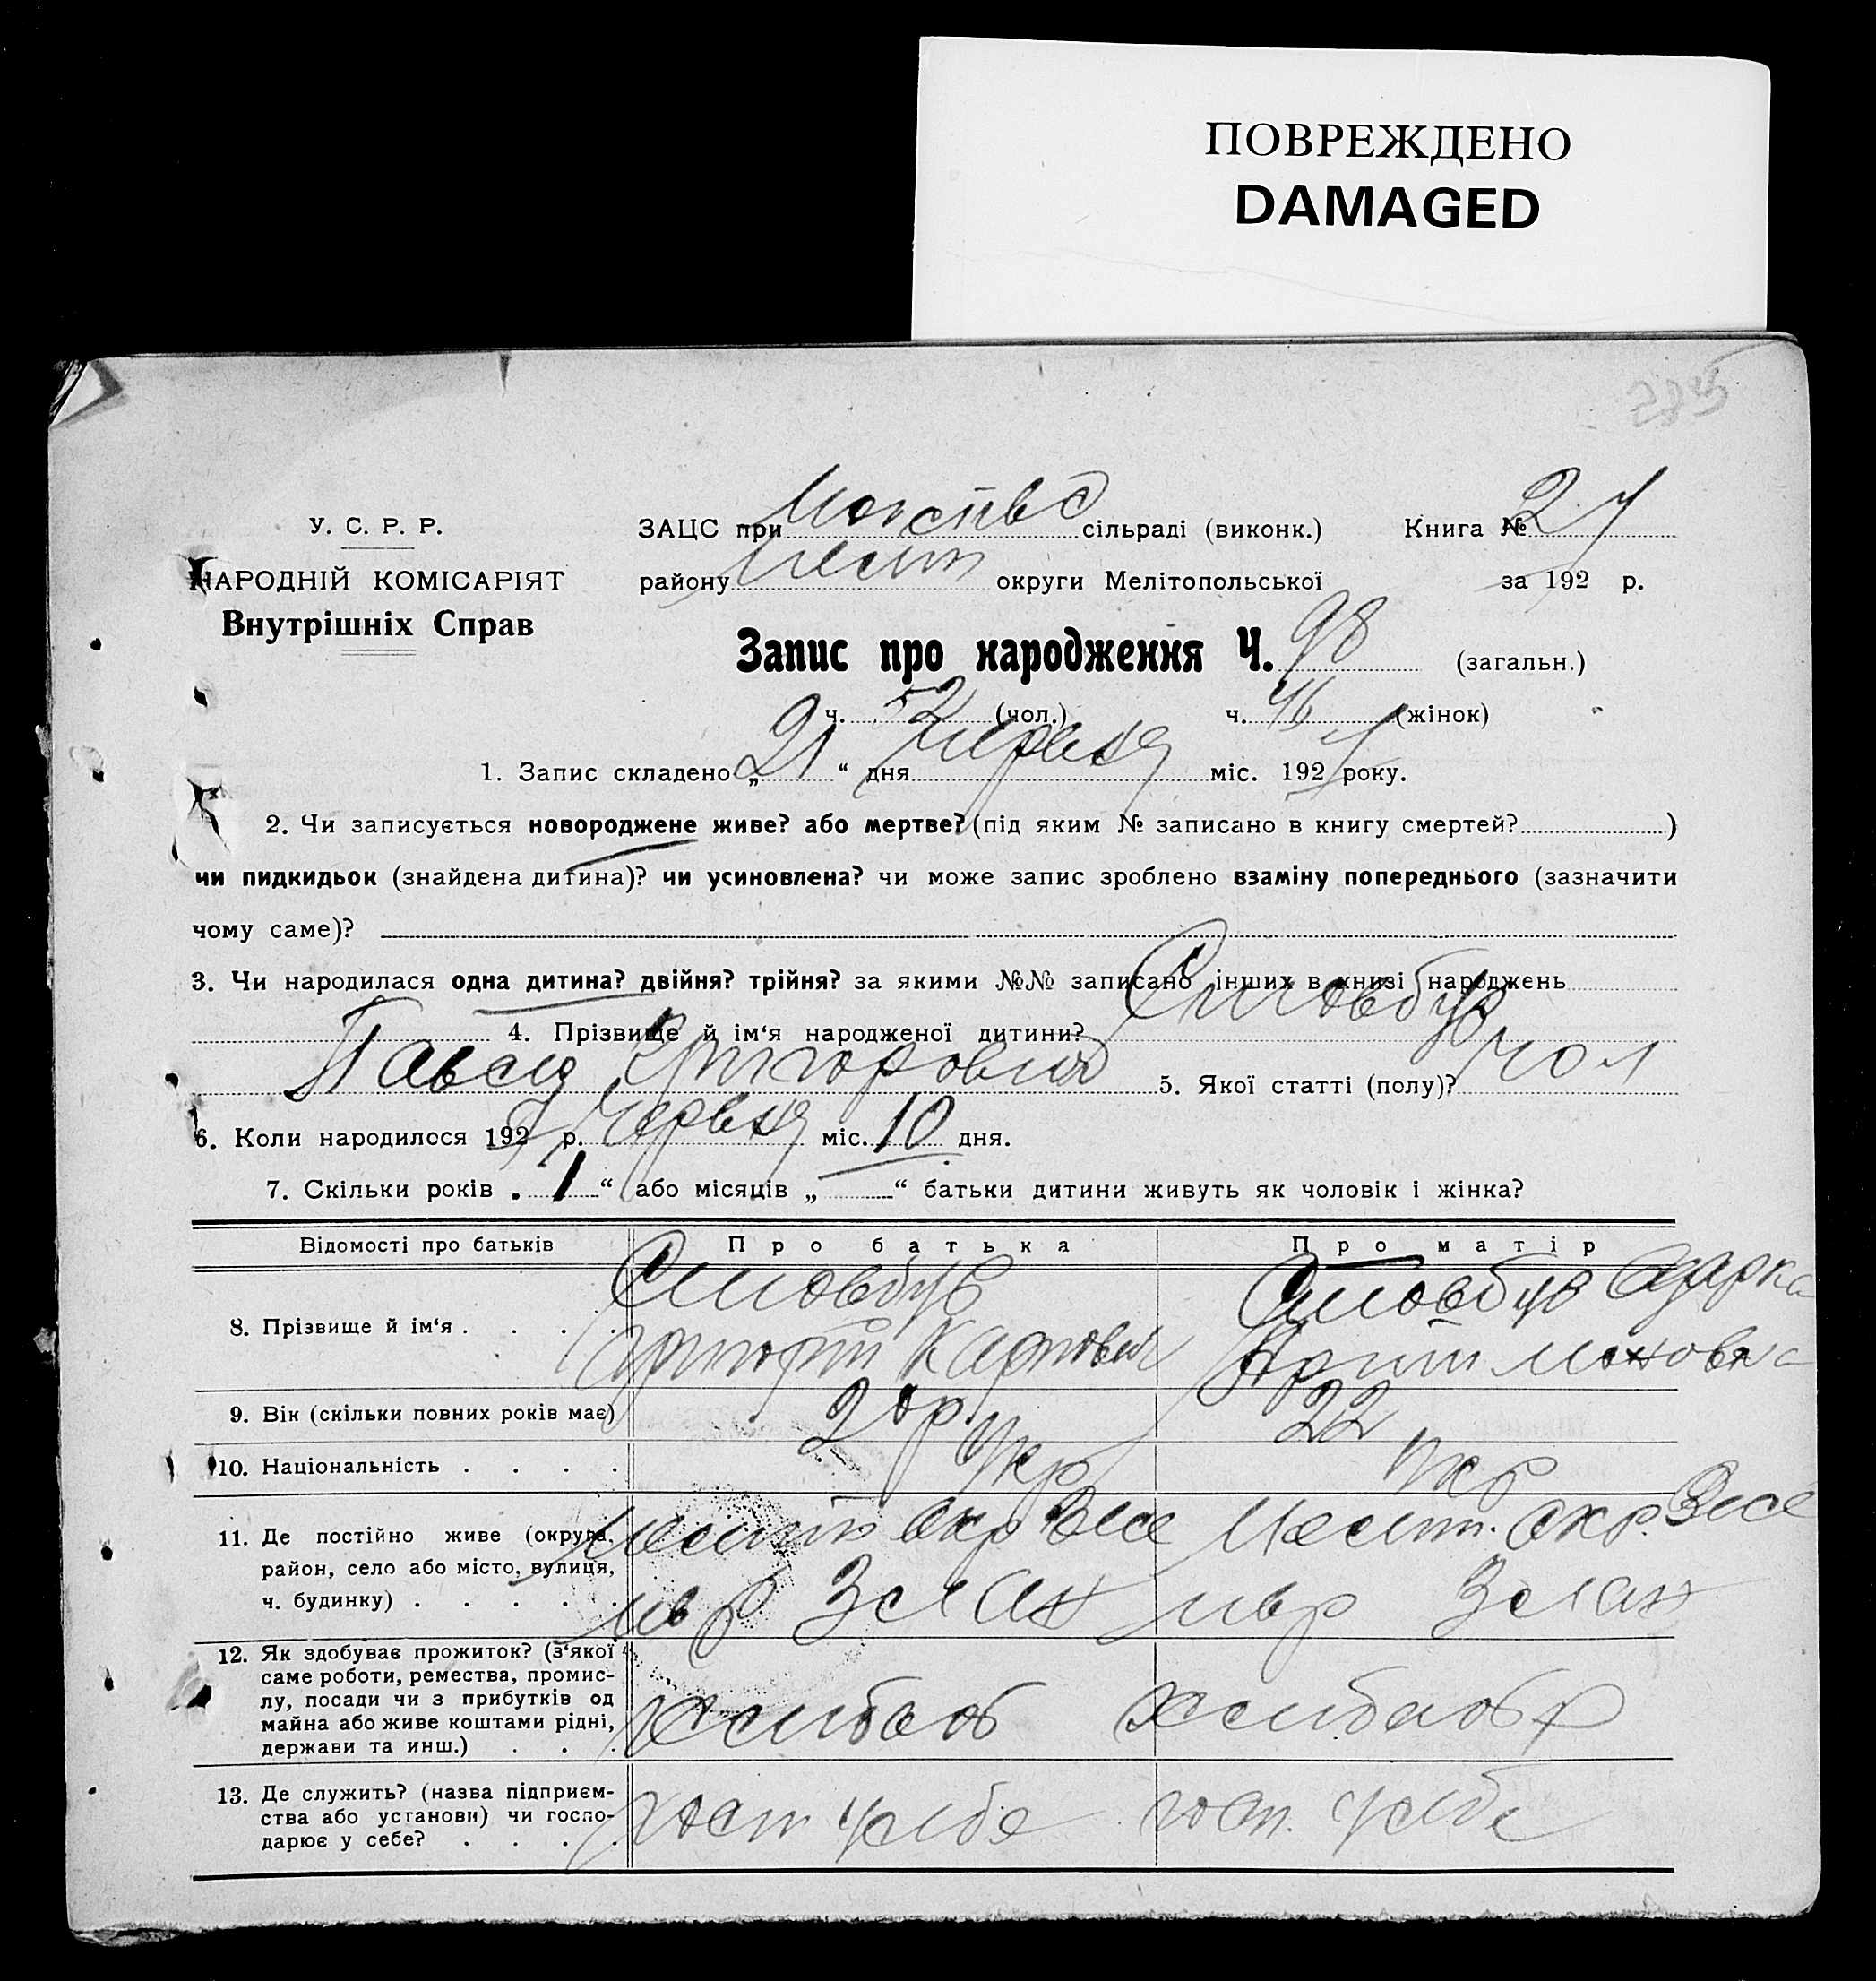 ПОВРЕЖДЕНО
DAMAGED
285
У. С. Р. Р.
НАРОДНІЙ КОМІСАРІЯТ
Внутрішніх Справ
ЗАЦС при сільраді (виконк.) Книга № 2
району округи Мелітопольської за 192 р.
Запис про народження Ч. 98 (загальн.)
ч. 52 (чол.) ч. 46 (жінок)
1. Запис складено „21“ дня Червня міс. 192 року.
2. Чи записується новороджене живе? або мертве? (під яким № записано в книгу смертей? )
чи пидкидьок (знайдена дитина)? чи усиновлена? чи може запис зроблено взаміну попереднього (зазначити
чому саме)?
3. Чи народилася одна дитина? двійня? трійня? за якими №№ записано інших в книзі народжень
4. Прізвище й ім‘я народженої дитини? Стовбур
Павло Григорович 5. Якої статті (полу)? чол
6. Коли народилося 192 р. Червня міс. 10 дня.
7. Скільки років „1“ або місяців „ “ батьки дитини живуть як чоловік і жінка?
Відомості про батьків Про батька Про матір
8. Прізвище й ім‘я . . . . Стовбур Григорій Карпович Стовбур Одарка
9. Вік (скільки повних років має) 20 р. 22
10. Національність . . . . Укр Укр
11. Де постійно живе (округа, Меліт окр Весе Меліт. окр. Весе
район, село або місто, вулиця,
ч. будинку) . . . . .
12. Як здобуває прожиток? (з‘якої
саме роботи, ремества, промис-
лу, посади чи з прибутків од хлібооб хлібообр
майна або живе коштами рідні,
держави та инш.) . . .
13. Де служить? (назва підприєм-
ства або установи) чи госпо- госп. у себе госп. у себе
дарює у себе? . . . .